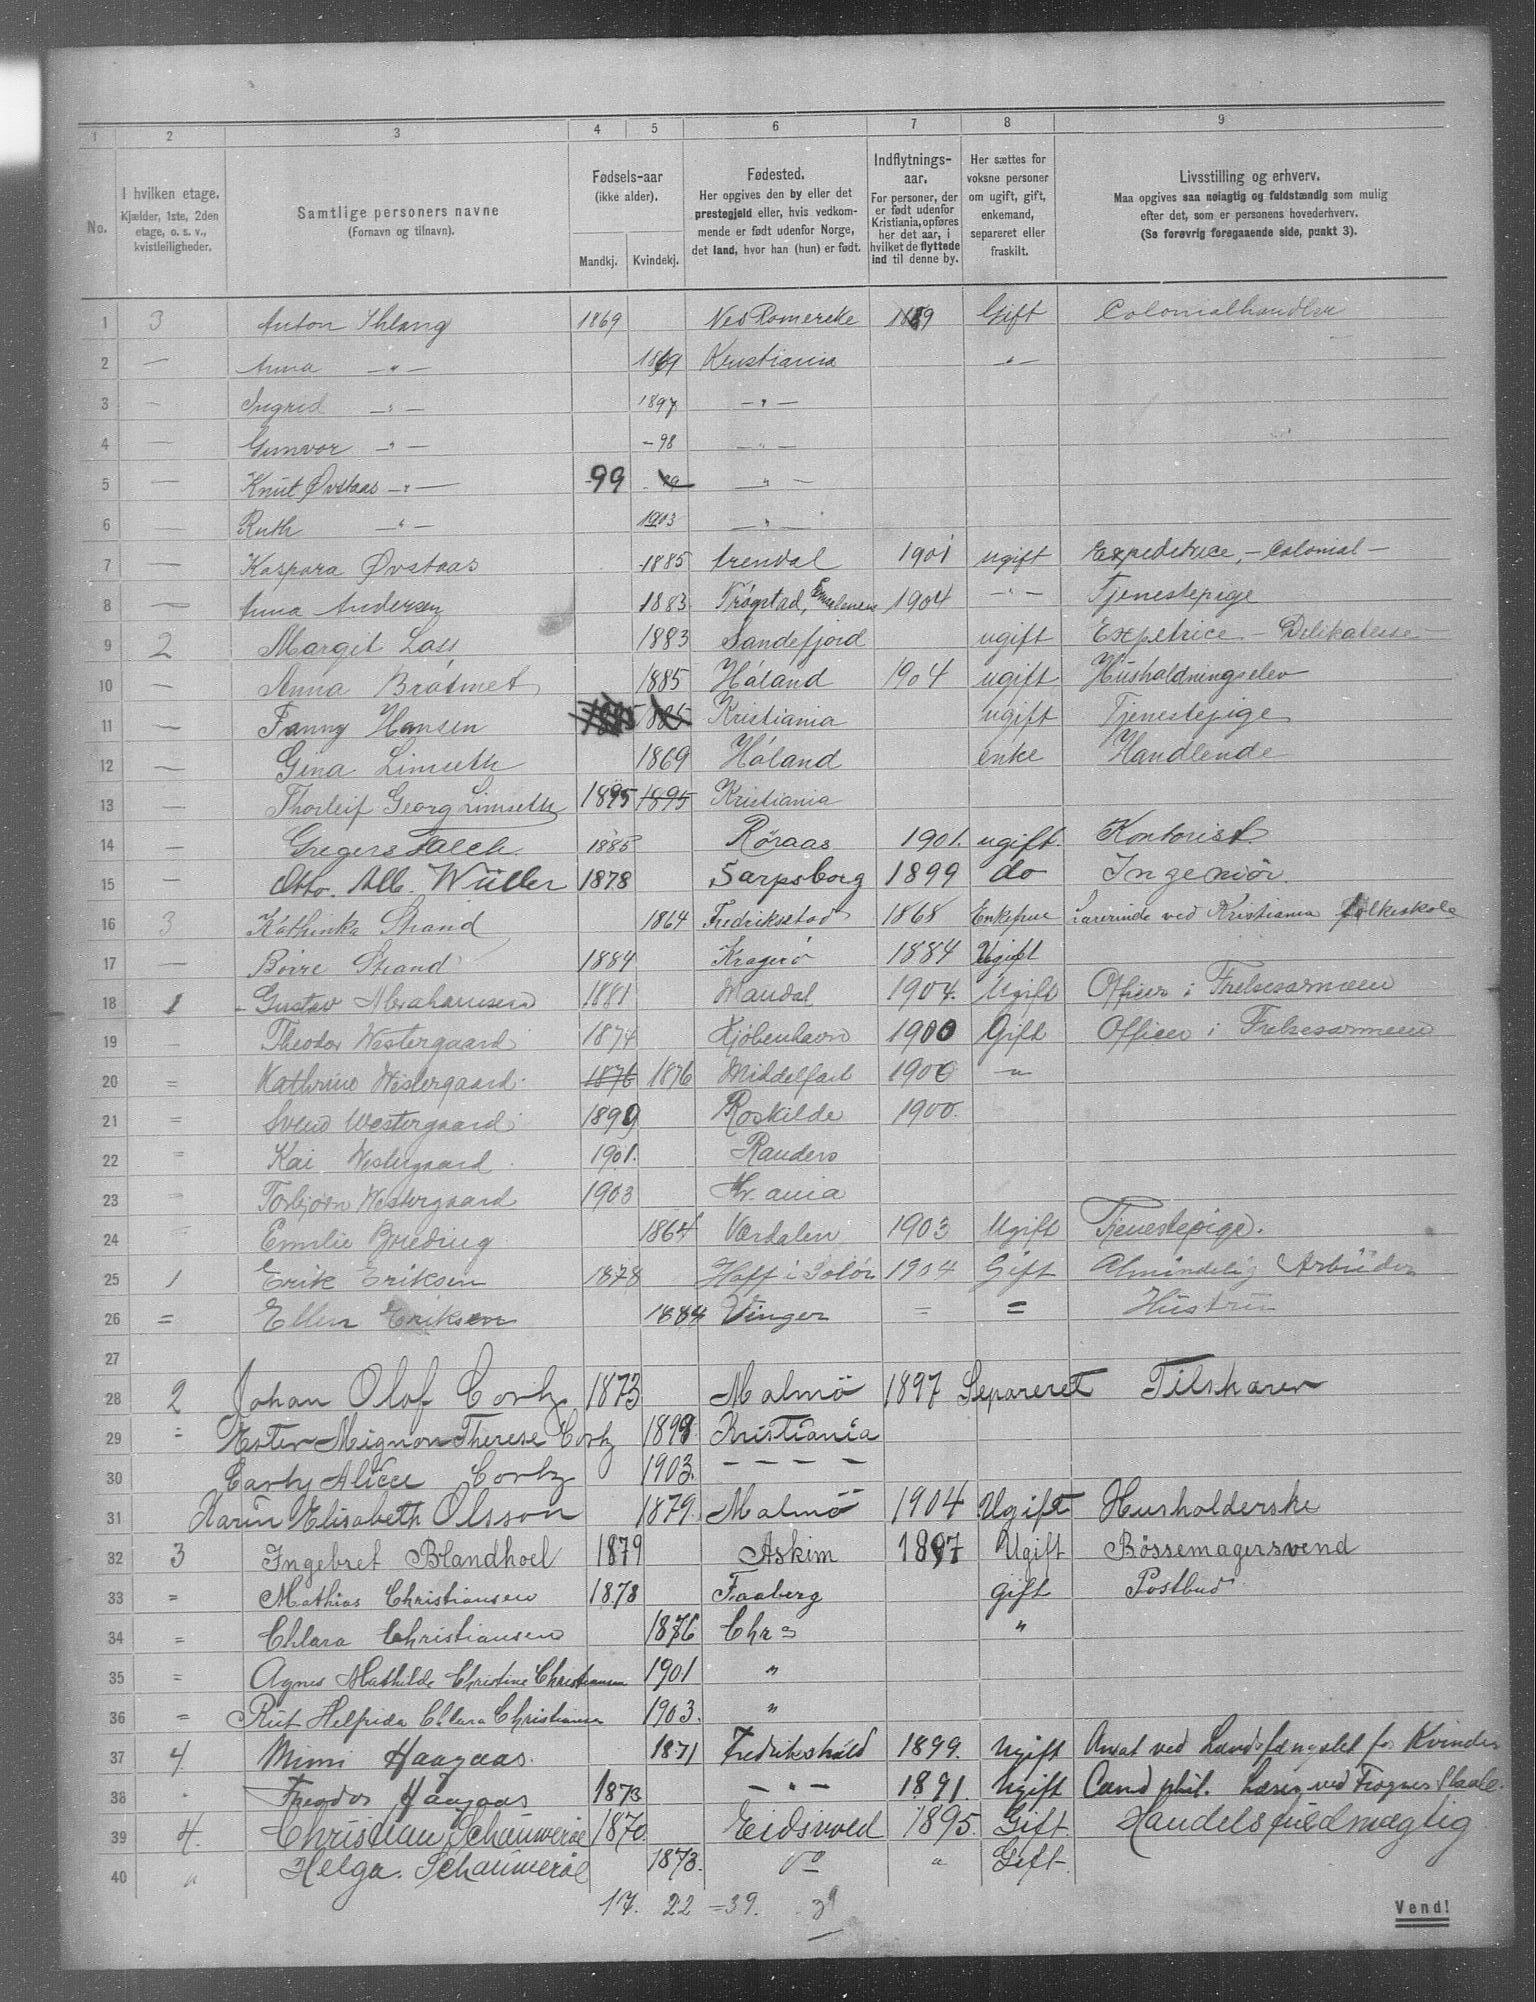 1 2 3 4 5 6 7 8 9
No. I hvilken etage. Kjælder, 1ste, 2den etage, o. s. v., kvistleiligheder. Samtlige personers navne (Fornavn og tilnavn). Fødsels-aar (ikke alder). Mandkj. Kvindekj. Fødested. Her opgives den by eller det prestegjeld eller, hvis vedkommende er født udenfor Norge, det land, hvor han (hun) er født. Indflytnings-aar. For personer, der er født udenfor Kristiania, opføres her det aar, i hvilket de flyttede ind til denne by. Her sættes for voksne personer om ugift, gift, enkemand, separeret eller fraskilt. Livsstilling og erhverv. Maa opgives saa nøiagtig og fuldstændig som mulig efter det, som er personens hovederhverv. (Se forøvrig foregaaende side, punkt 3).
1 3 Anton Ihlang 1869 Nes Romereke 1889 Gift Colonialhandler
2 — Anna —"— 1869 Kristiania —"—
3 — Ingrid —"— 1897 —"—
4 — Gunvor —"— -98 —"—
5 — Knut Øvstaas —"— 99 99 —"—
6 — Ruth —"— 1903 —"—
7 — Kaspara Øvstaas 1885 Arendal 1901 ugift Expeditrice, - Colonial -
8 — Anna Andersen 1883 Trøgstad, 1904 —"— Tjenestepige
9 2 Margit Lass 1883 Sandefjord ugift Expetrice - Delikatesse
10 — Anna Bråtmet 1885 Høland 1904 ugift Husholdningselev
11 — Fanny Hansen 1885 1885 Kristiania ugift Tjenestepige
12 — Gina Limseth 1869 Høland enke Handlende
13 — Thorleif Georg Limseth 1895 1895 Kristiania
14 — Gregers Falch. 1885 Røraas 1901. ugift. Kontorist.
15 — Otto. Alb. Wüller 1878 Sarpsborg 1899 do Ingeniör.
16 3 Kathinka Strand 1864 Fredriksstad 1868 Enkefrue Lærerinde ved Kristiania folkeskole
17 — Börre Strand 1884 Kragerö 1884 Ugift
18 1 Gustav Abrahamsen 1881 Mandal 1904. Ugift Officer i Frelsesarmeen
19 — Theodor Westergaard 1874 Kjøbenhavn 1900 Gift Officer i Frelsesarmeen
20 = Kathrine Westergaard. 1876 1876 Middelfart 1900 —"—
21 = Svend Westergaard 1899 Roskilde 1900.
22 = Kai Westergaard 1901. Randers
23 = Torbjørn Westergaard 1903 Kr.ania
24 = Emilie Breding 1864 Værdalen 1903 Ugift Tjenestepige.
25 1 Erik Eriksen 1878 Hoff i Solør 1904 Gift Almindelig Arbeider
26 = Ellen Eriksen 1884 Vinger = = Hustru
27
28 2 Johan Olof Cortz 1873 Malmö 1897 Separeret Tilskärer
29 = Ester Mignon Therese Cortz 1899 Kristiania
30 Carly Alice Cortz 1903. — — — —
31 Karin Elisabeth Olsson 1879 Malmö 1904 Ugift Husholderske
32 3 Ingebret Blandhoel 1879 Askim 1897 Ugift Bössemagersvend
33 = Mathias Christiansen 1878 Faaberg gift Postbud
34 = Chlara Christiansen 1876 Chra "
35 = Agnes Mathilde Christine Christiansen 1901 "
36 = Rut Helfrida Chlara Christiansen 1903. "
37 4. Mimi Haagaas. 1871 Fredrikshald 1899. Ugift Ansat ved Landsfængslet for Kvinder
38 " Theodor Haagaas 1873 —"— 1891. Ugift Cand phil. Lærer ved Frogner Skole.
39 4. Christian Schauwerøe 1870 Eidsvold 1895. Gift. Handelsfuldmægtig
40 " Helga. Schauwerøe 1873. do " Gift.
17. 22 = 39.
Vend!